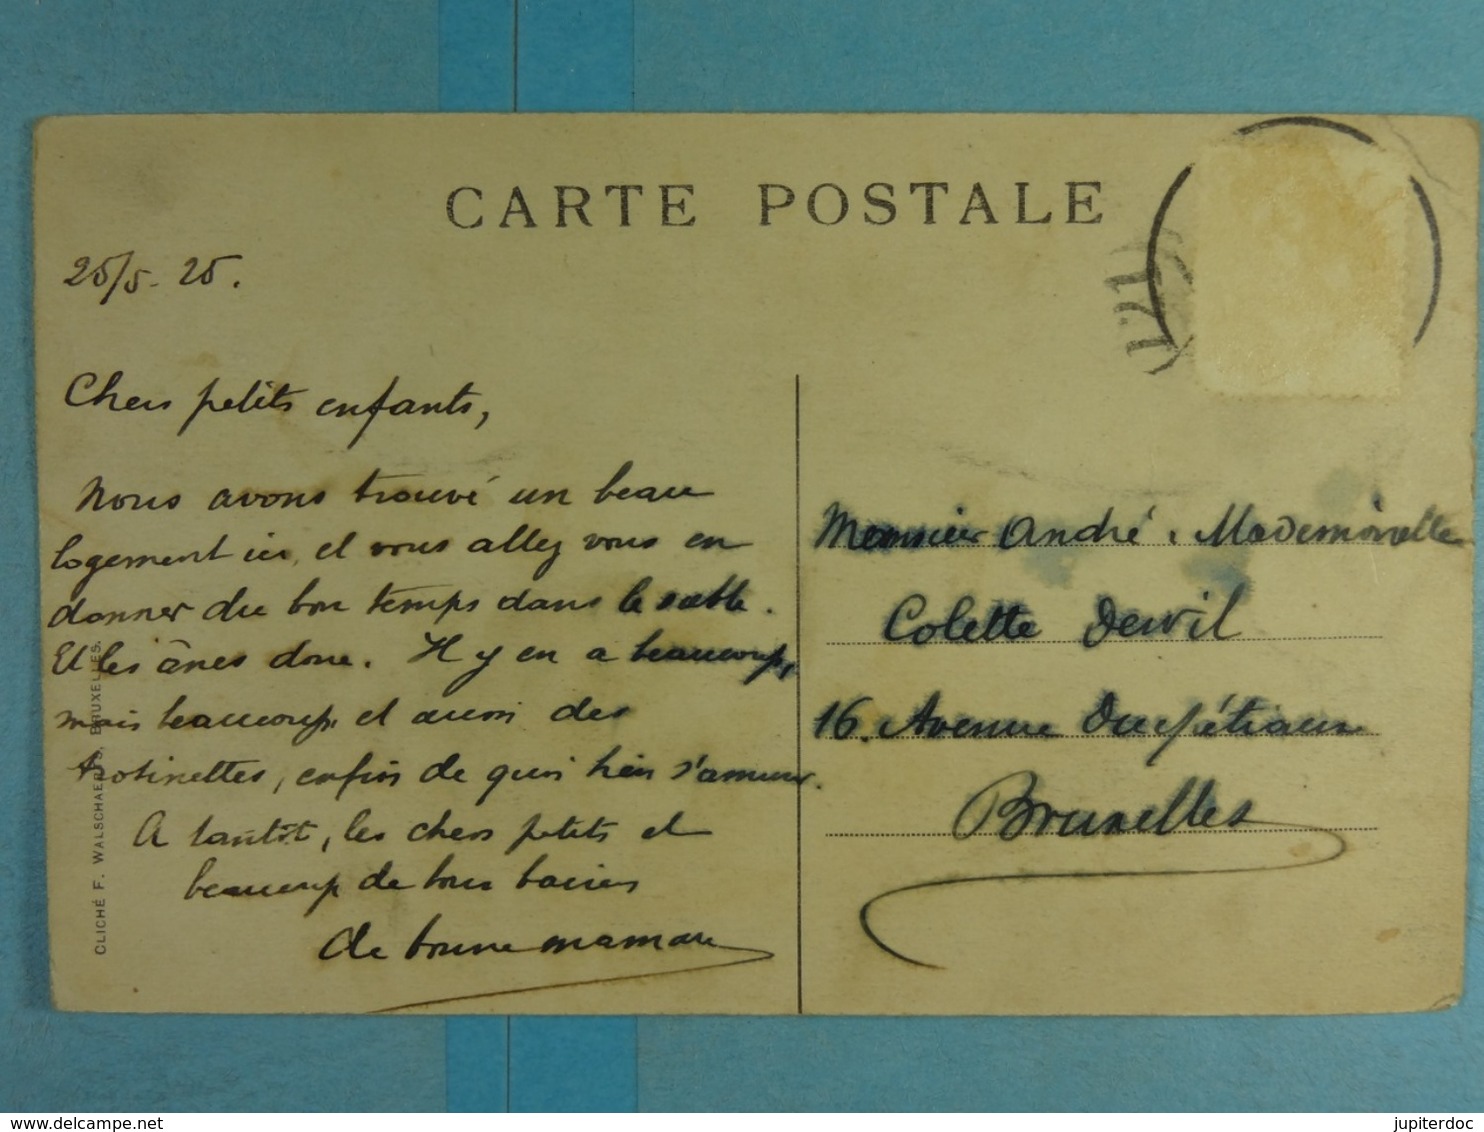 CARTE POSTALE
25/5. 25.
Chers petits enfants,
Nous avons trouvé un beau
logement ici, et vous allez vous en
donner du bon temps dans le sable.
Et les ânes donc. Il y en a beaucoup,
mais beaucoup, et aussi des
trotinettes, enfin de quoi bien s'amuser.
A tantôt, les chers petits et
beaucoup de bons baisers
de bonne maman
Monsieur André. Mademoiselle
Colette Dewil
16. Avenue Ducpétiaux
Bruxelles
CLICHÉ F. WALSCHAERTS, BRUXELLES.
delcampe.net
jupiterdoc